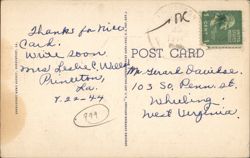 Thanks for nice
Card.
Write soon
Mrs Leslie C. Webb
Princeton,
La.
7-22-44
799
POST CARD
Mr. Gerard Davidse.
103 So. Penn. St.
Wheeling
West Virginia.